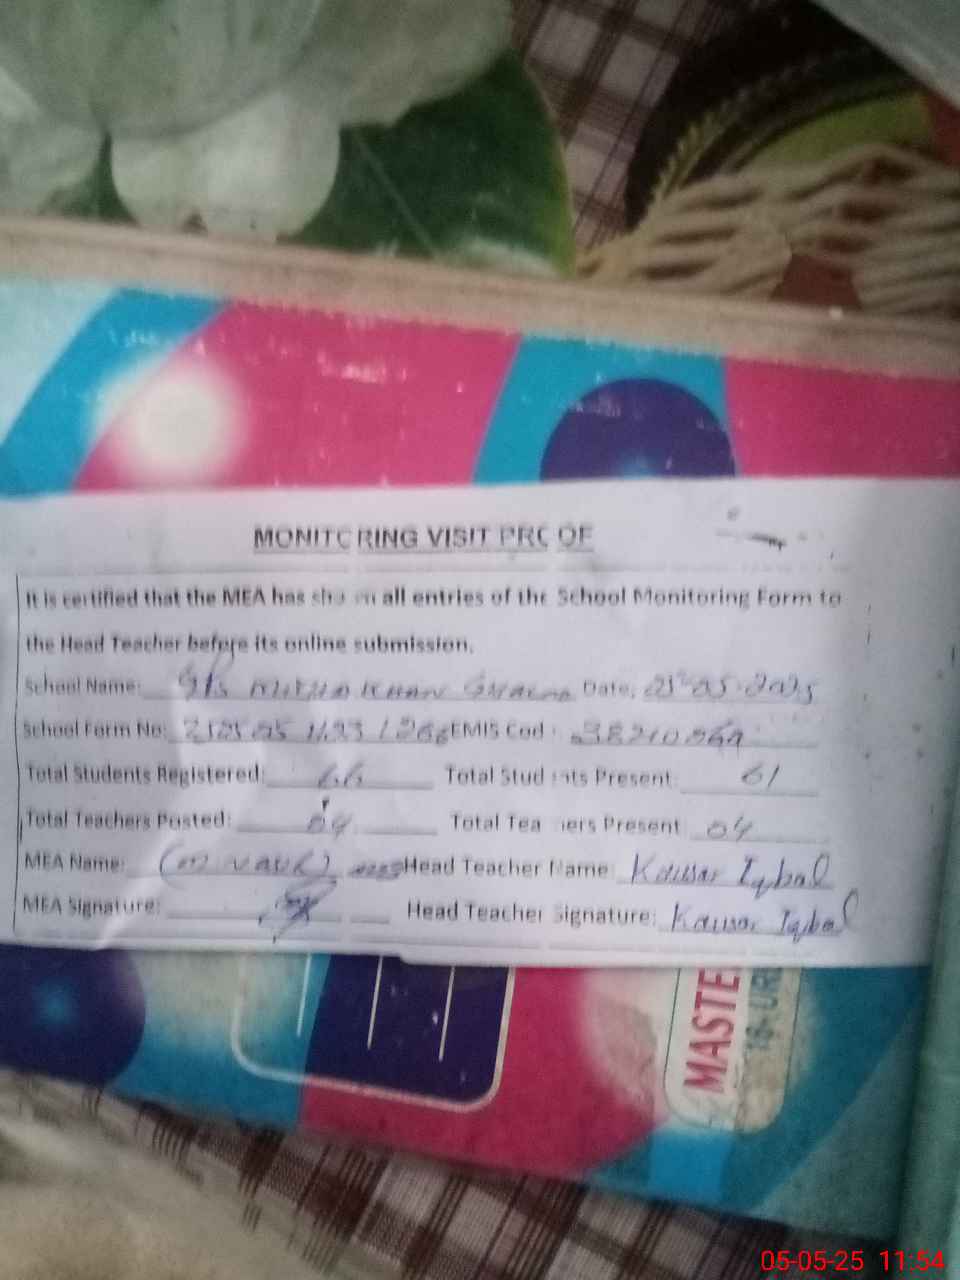 MONITORING VISIT PROOF
It is certified that the MEA has shown all entries of the School Monitoring Form to
the Head Teacher before its online submission.
School Name: GPS MITHA KHAN Date: -05-2025
School Form No: EMIS Cod
Total Students Registered: 66 Total Students Present: 61
Total Teachers Posted: 04 Total Teachers Present 04
MEA Name: Head Teacher Name: Kausar Iqbal
MEA Signature: Head Teacher Signature: Kausar Iqbal
MASTE
05-05-25 11:54